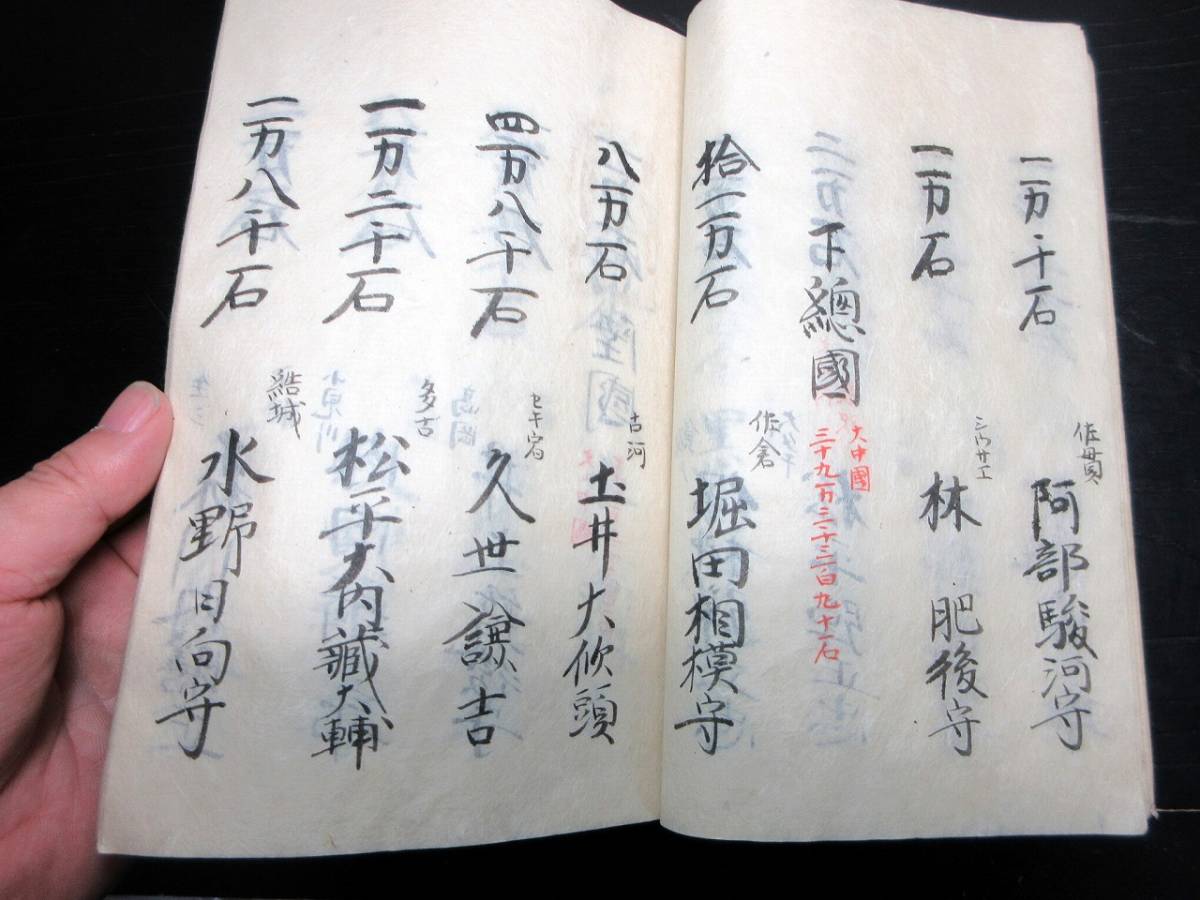 一万・千石 佐貫 阿部駿河守
一万石 シウサエ 林 肥後守
下總國 大中國
三十九万三千三百九十一石
拾一万石 佐倉 堀田相模守
八万石 古河 土井大炊頭
四万八千石 セキ宿 久世謙吉
一万二千石 多古 松平大内藏大輔
一万八千石 結城 水野日向守